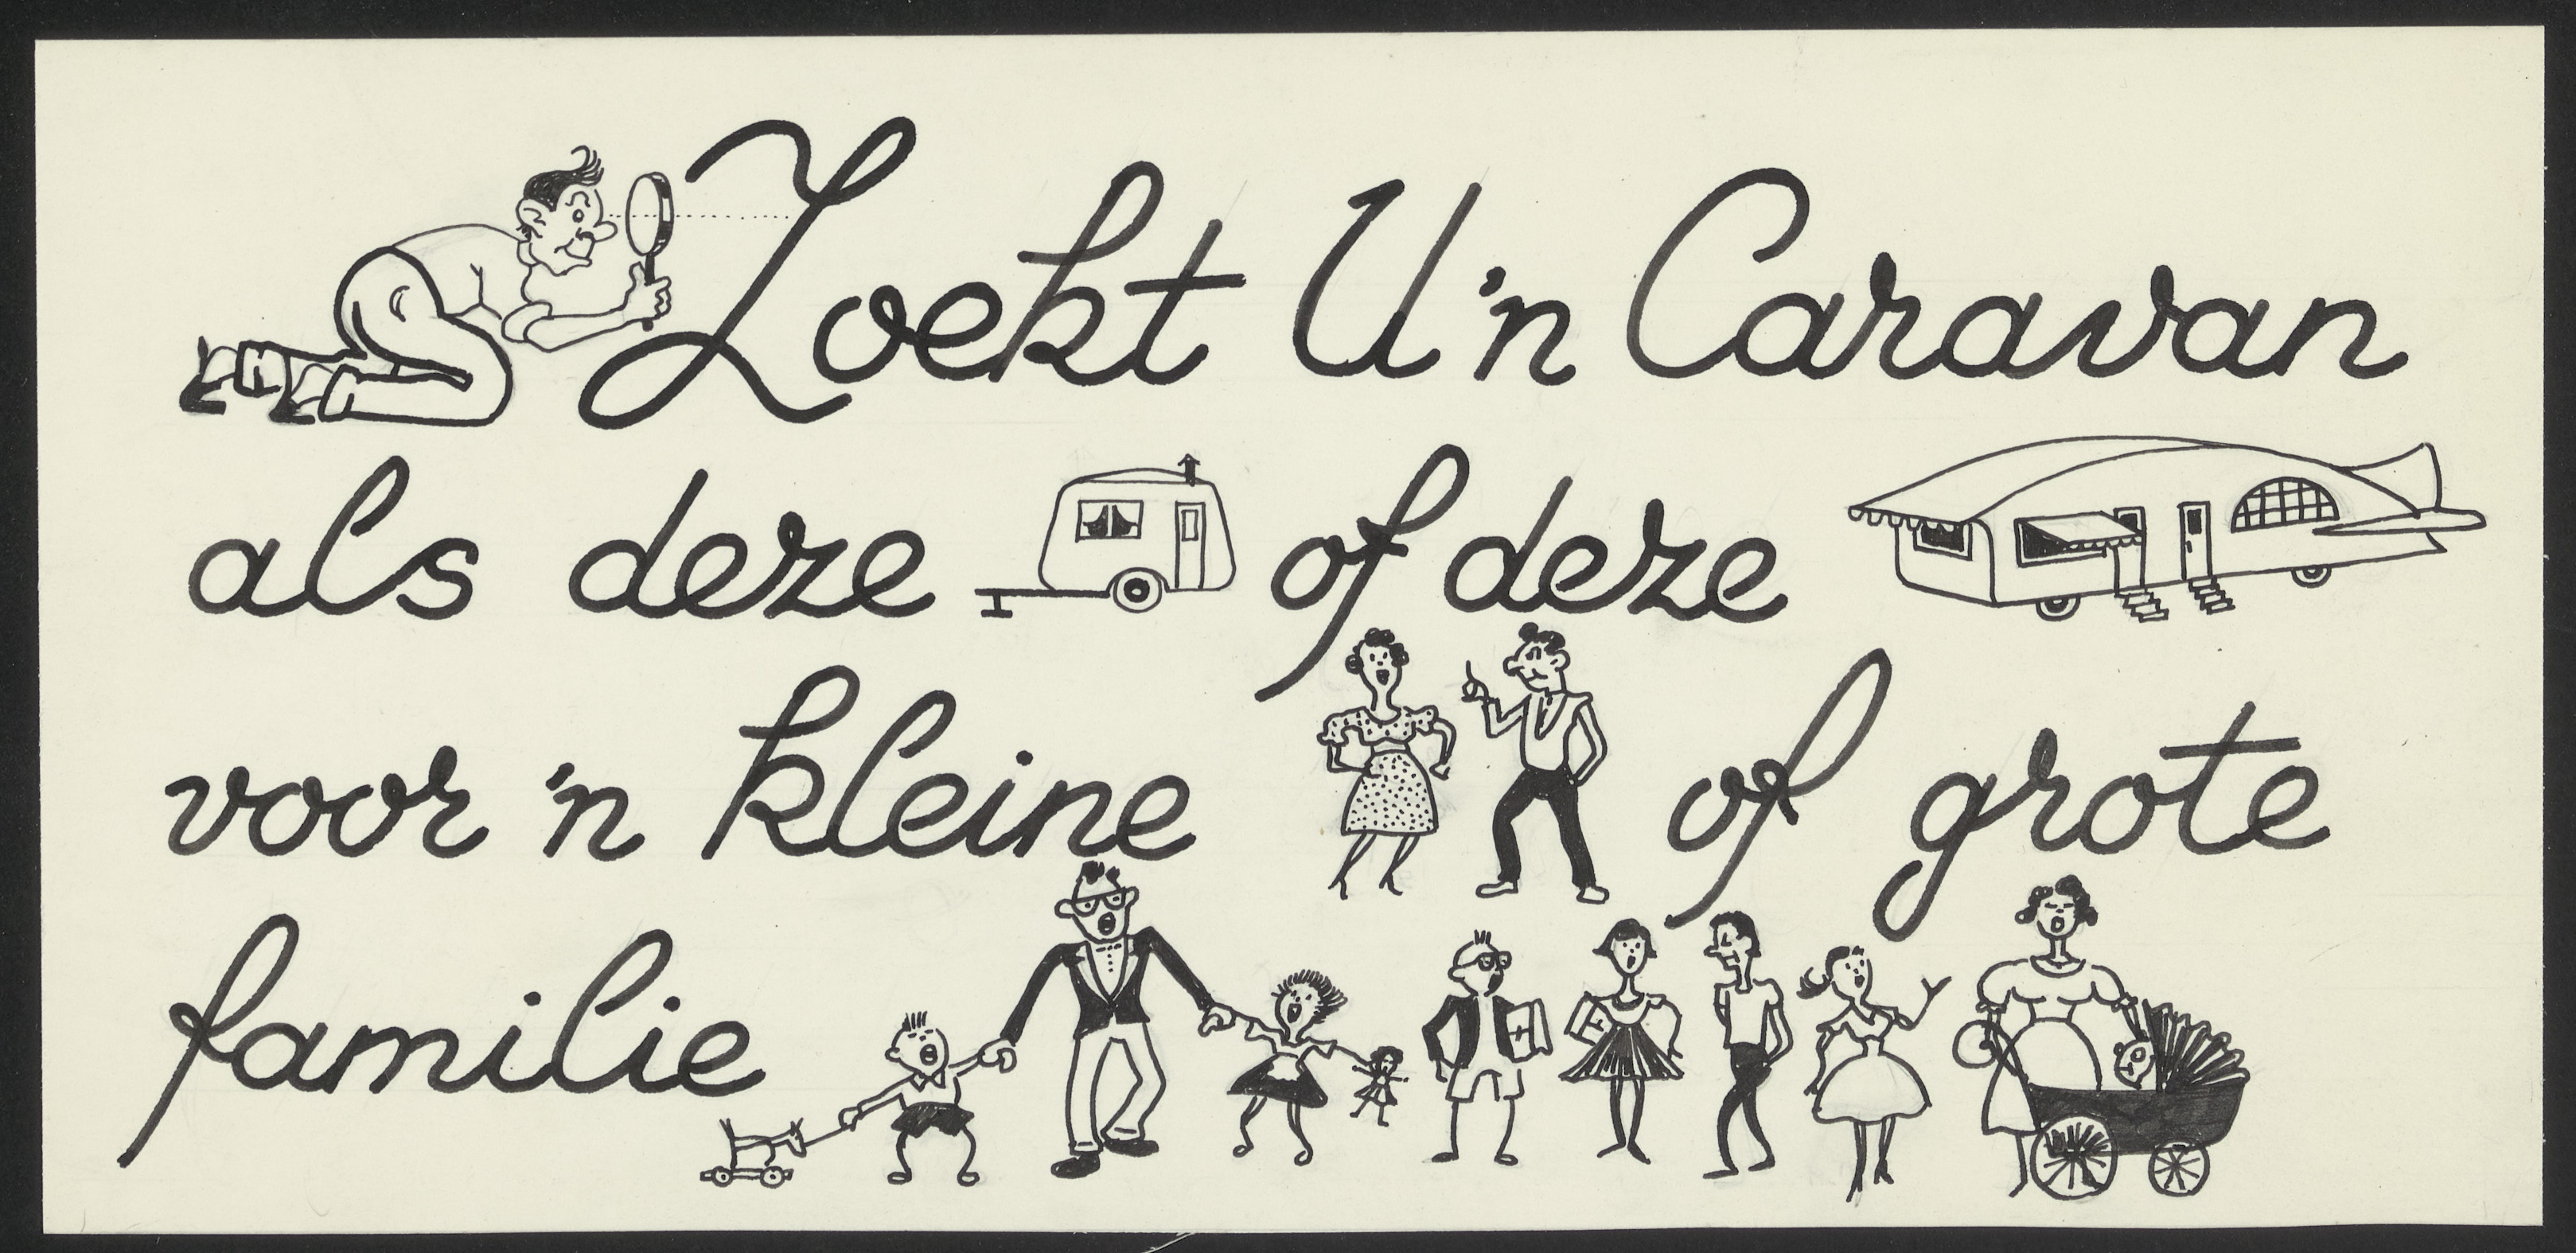 Zoekt U 'n Caravan
als deze of deze
voor 'n kleine of grote
familie